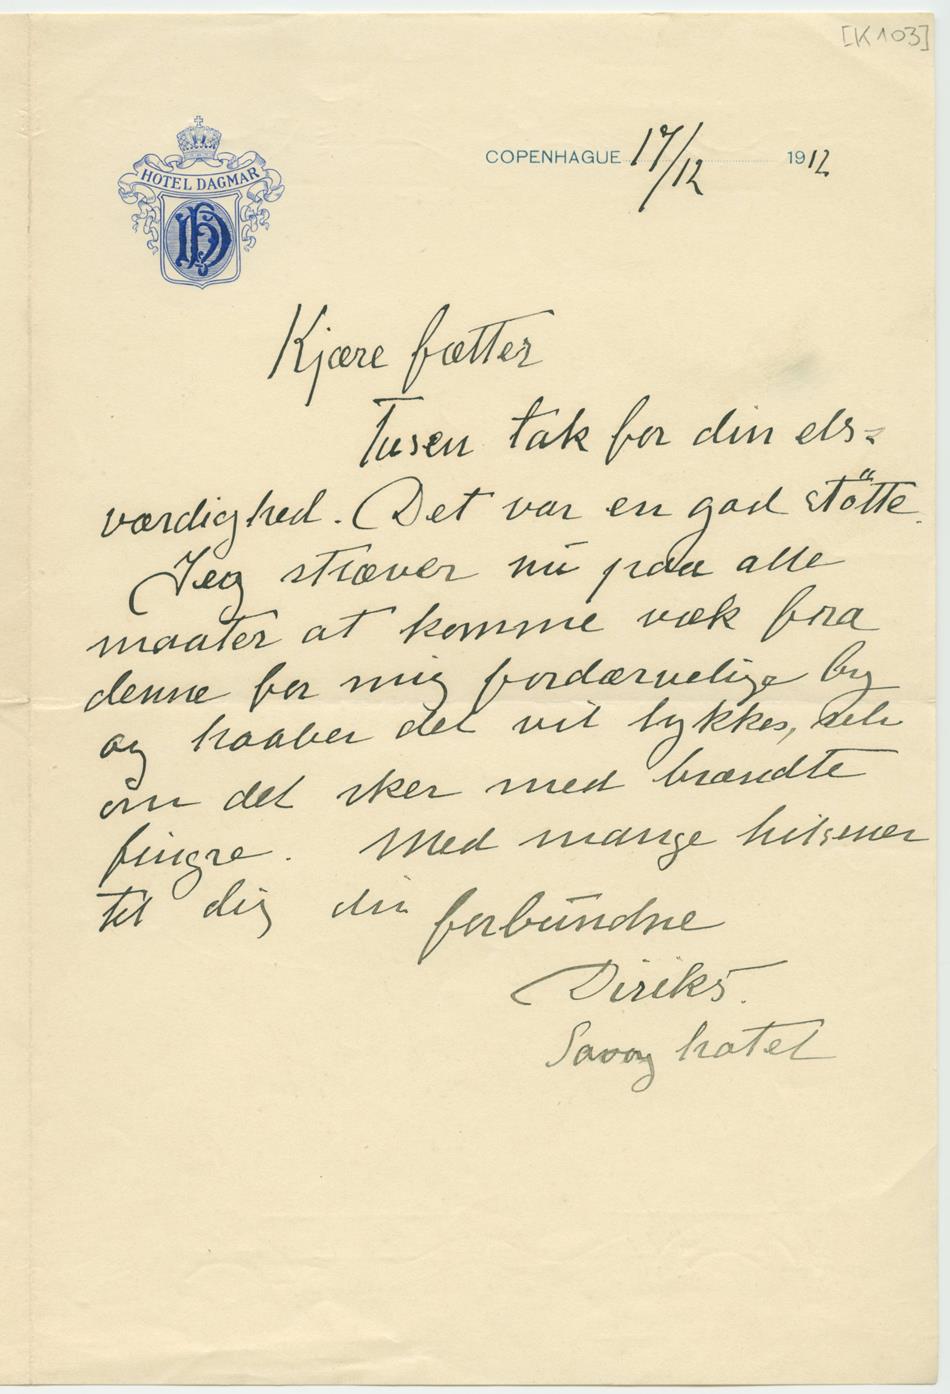 [K103]
HOTEL DAGMAR
HD
COPENHAGUE 17/12 1912
Kjære fætter
Tusen tak for din els=
værdighed. Det var en god støtte.
Jeg stræver nu paa alle
maater at komme væk fra
denne for mig fordærvelige by
og haaber det vil lykkes, selv
om det sker med brændte
fingre. Med mange hilsener
til dig din forbundne
Diriks.
Savoy hotel